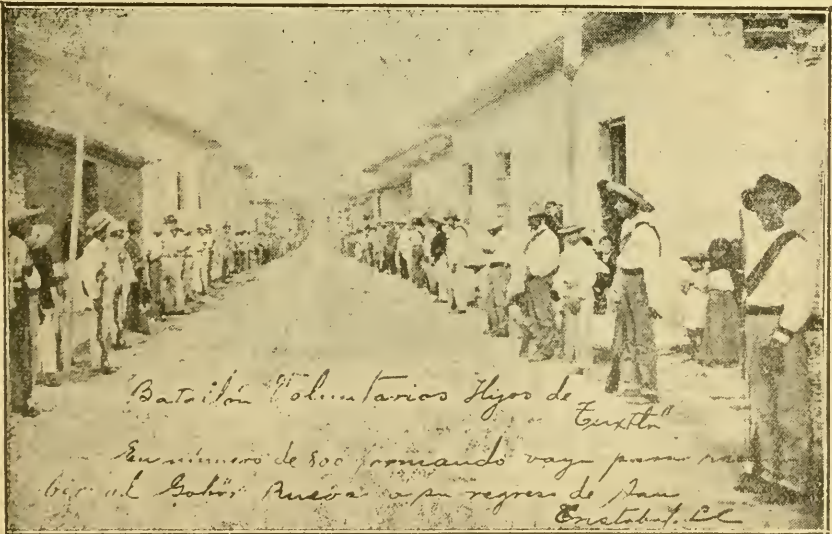 Batallón Voluntarios Hijos de
Tuxtla"
En número de 500 formando vaya para
al Gobor Rueda a su regreso de San
Cristobal